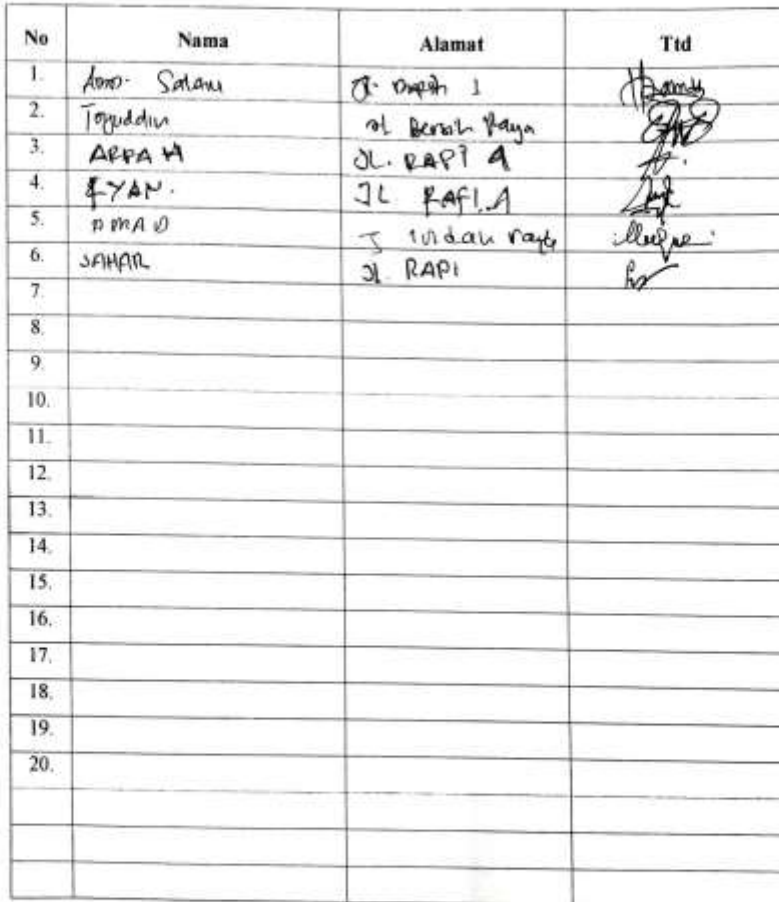 No Nama Alamat Ttd
1. Salam
2. Tajuddin Jl Bersih Raya
3. ARPAH JL. RAPI A
4. RYAN. JL RAFI.A
5. AMAD indah raya
6. SAHAR Jl. RAPI
7.
8.
9.
10.
11.
12.
13.
14.
15.
16.
17.
18.
19.
20.